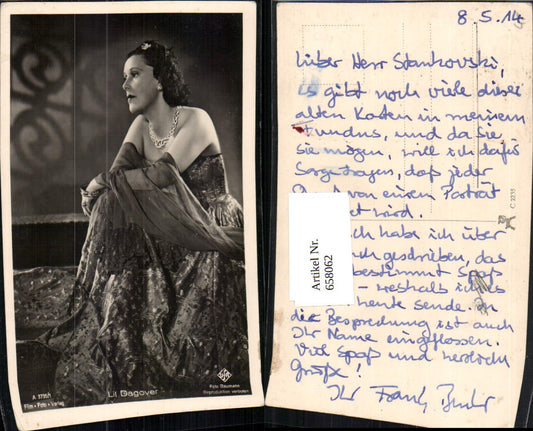 A 3735/1
Film-Foto-Verlag
Lil Dagover
Ufa
Foto Baumann
Reproduktion verboten
8.5.14
Lieber Herr Stankovski,
es gibt noch viele dieser
alten Karten in meinem
Fundus, und da Sie
sie mögen, will ich dafür
Sorge tragen, daß jeder
von einem Porträt
wird.
ich habe ich über
geschrieben, das
bestimmt Spaß
– weshalb ich es
heute sende. In
die Besprechung ist auch
Ihr Name eingeflossen.
Viel Spaß und herzlich
Grüße!
Ihr Frank
C 2235
Artikel Nr.
658062